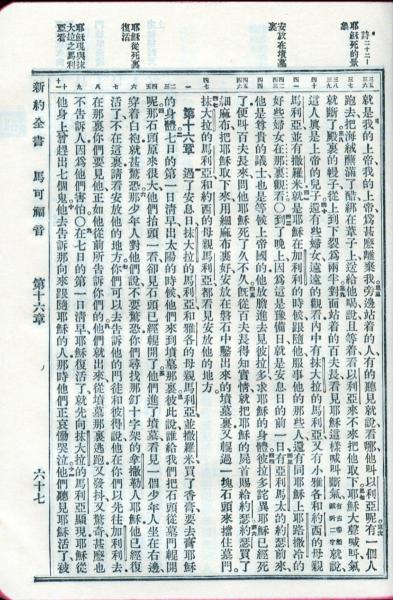 詩二十二一
耶穌死的景象
安放在墳墓裏
耶穌從死裏復活
就是我的上帝我的上帝爲甚麽離棄我旁邊站着的人有的聽見就說看哪他叫以利亞呢有一個人
跑去把海絨蘸滿了醋綁在葦子上送給他喝說且等着看以利亞來不來把他取下耶穌大聲喊叫氣
就斷了殿裏的幔子從上到下裂爲兩半對面站着的百夫長看見耶穌這樣喊叫斷氣就說
這人眞是上帝的兒子還有些婦女遠遠的觀看內中有抹大拉的馬利亞又有小雅各和約西的母親
馬利亞並有撒羅米就是耶穌在加利利的時候跟隨他服事他的那些人還有同耶穌上耶路撒冷的
好些婦女在那裏觀看○到了晚上因爲這是豫備日就是安息日的前一日有亞利馬太的約瑟前來
他是尊貴的議士也是等候上帝國的他放膽進去見彼拉多求耶穌的身體彼拉多詫異耶穌已經死
了便叫百夫長來問他耶穌死了久不久旣從百夫長得知實情就把耶穌的屍首賜給約瑟約瑟買了
細麻布把耶穌取下來用細麻布裹好安放在磐石中鑿出來的墳墓裏又輥過一塊石頭來擋住墓門
抹大拉的馬利亞和約西的母親馬利亞都看見安放他的地方
第十六章 過了安息日抹大拉的馬利亞和雅各的母親馬利亞並撒羅米買了香膏要去膏耶穌
的身體七日的第一日淸早出太陽的時候他們來到墳墓那裏彼此說誰給我們把石頭從墓門輥開
呢那石頭原來很大他們抬頭一看却見石頭已經輥開了他們進了墳墓看見一個少年人坐在右邊
穿着白袍就甚驚恐那少年人對他們說不要驚恐你們尋找那釘十字架的拿撒勒人耶穌他已經復
活了不在這裏請看安放他的地方你們可以去告訴他的門徒和彼得說他在你們以先往加利利去
在那裏你們要見他正如他從前所告訴你們的他們就出來從墳墓那裏逃跑又發抖又驚奇甚麽也
不告訴人因爲他們害怕○在七日的第一日淸早耶穌復活了就先向抹大拉的馬利亞顯現耶穌從
他身上曾趕出七個鬼他去告訴那向來跟隨耶穌的人那時他們正哀慟哭泣他們聽見耶穌活了被
新約全書 馬可福音 第十六章 六十七